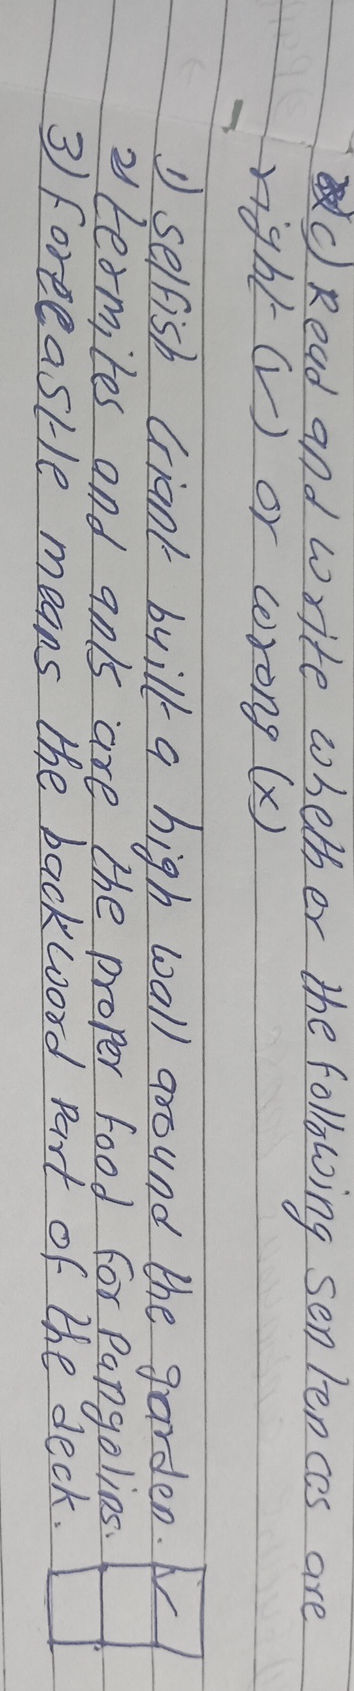 c) Read and write whether the following sentences are
right (✓) or wrong (x)
1) Selfish Giant built a high wall around the garden. ✓
2) termites and ants are the proper food for Pangolins.
3) Forecastle means the backword Part of the deck.